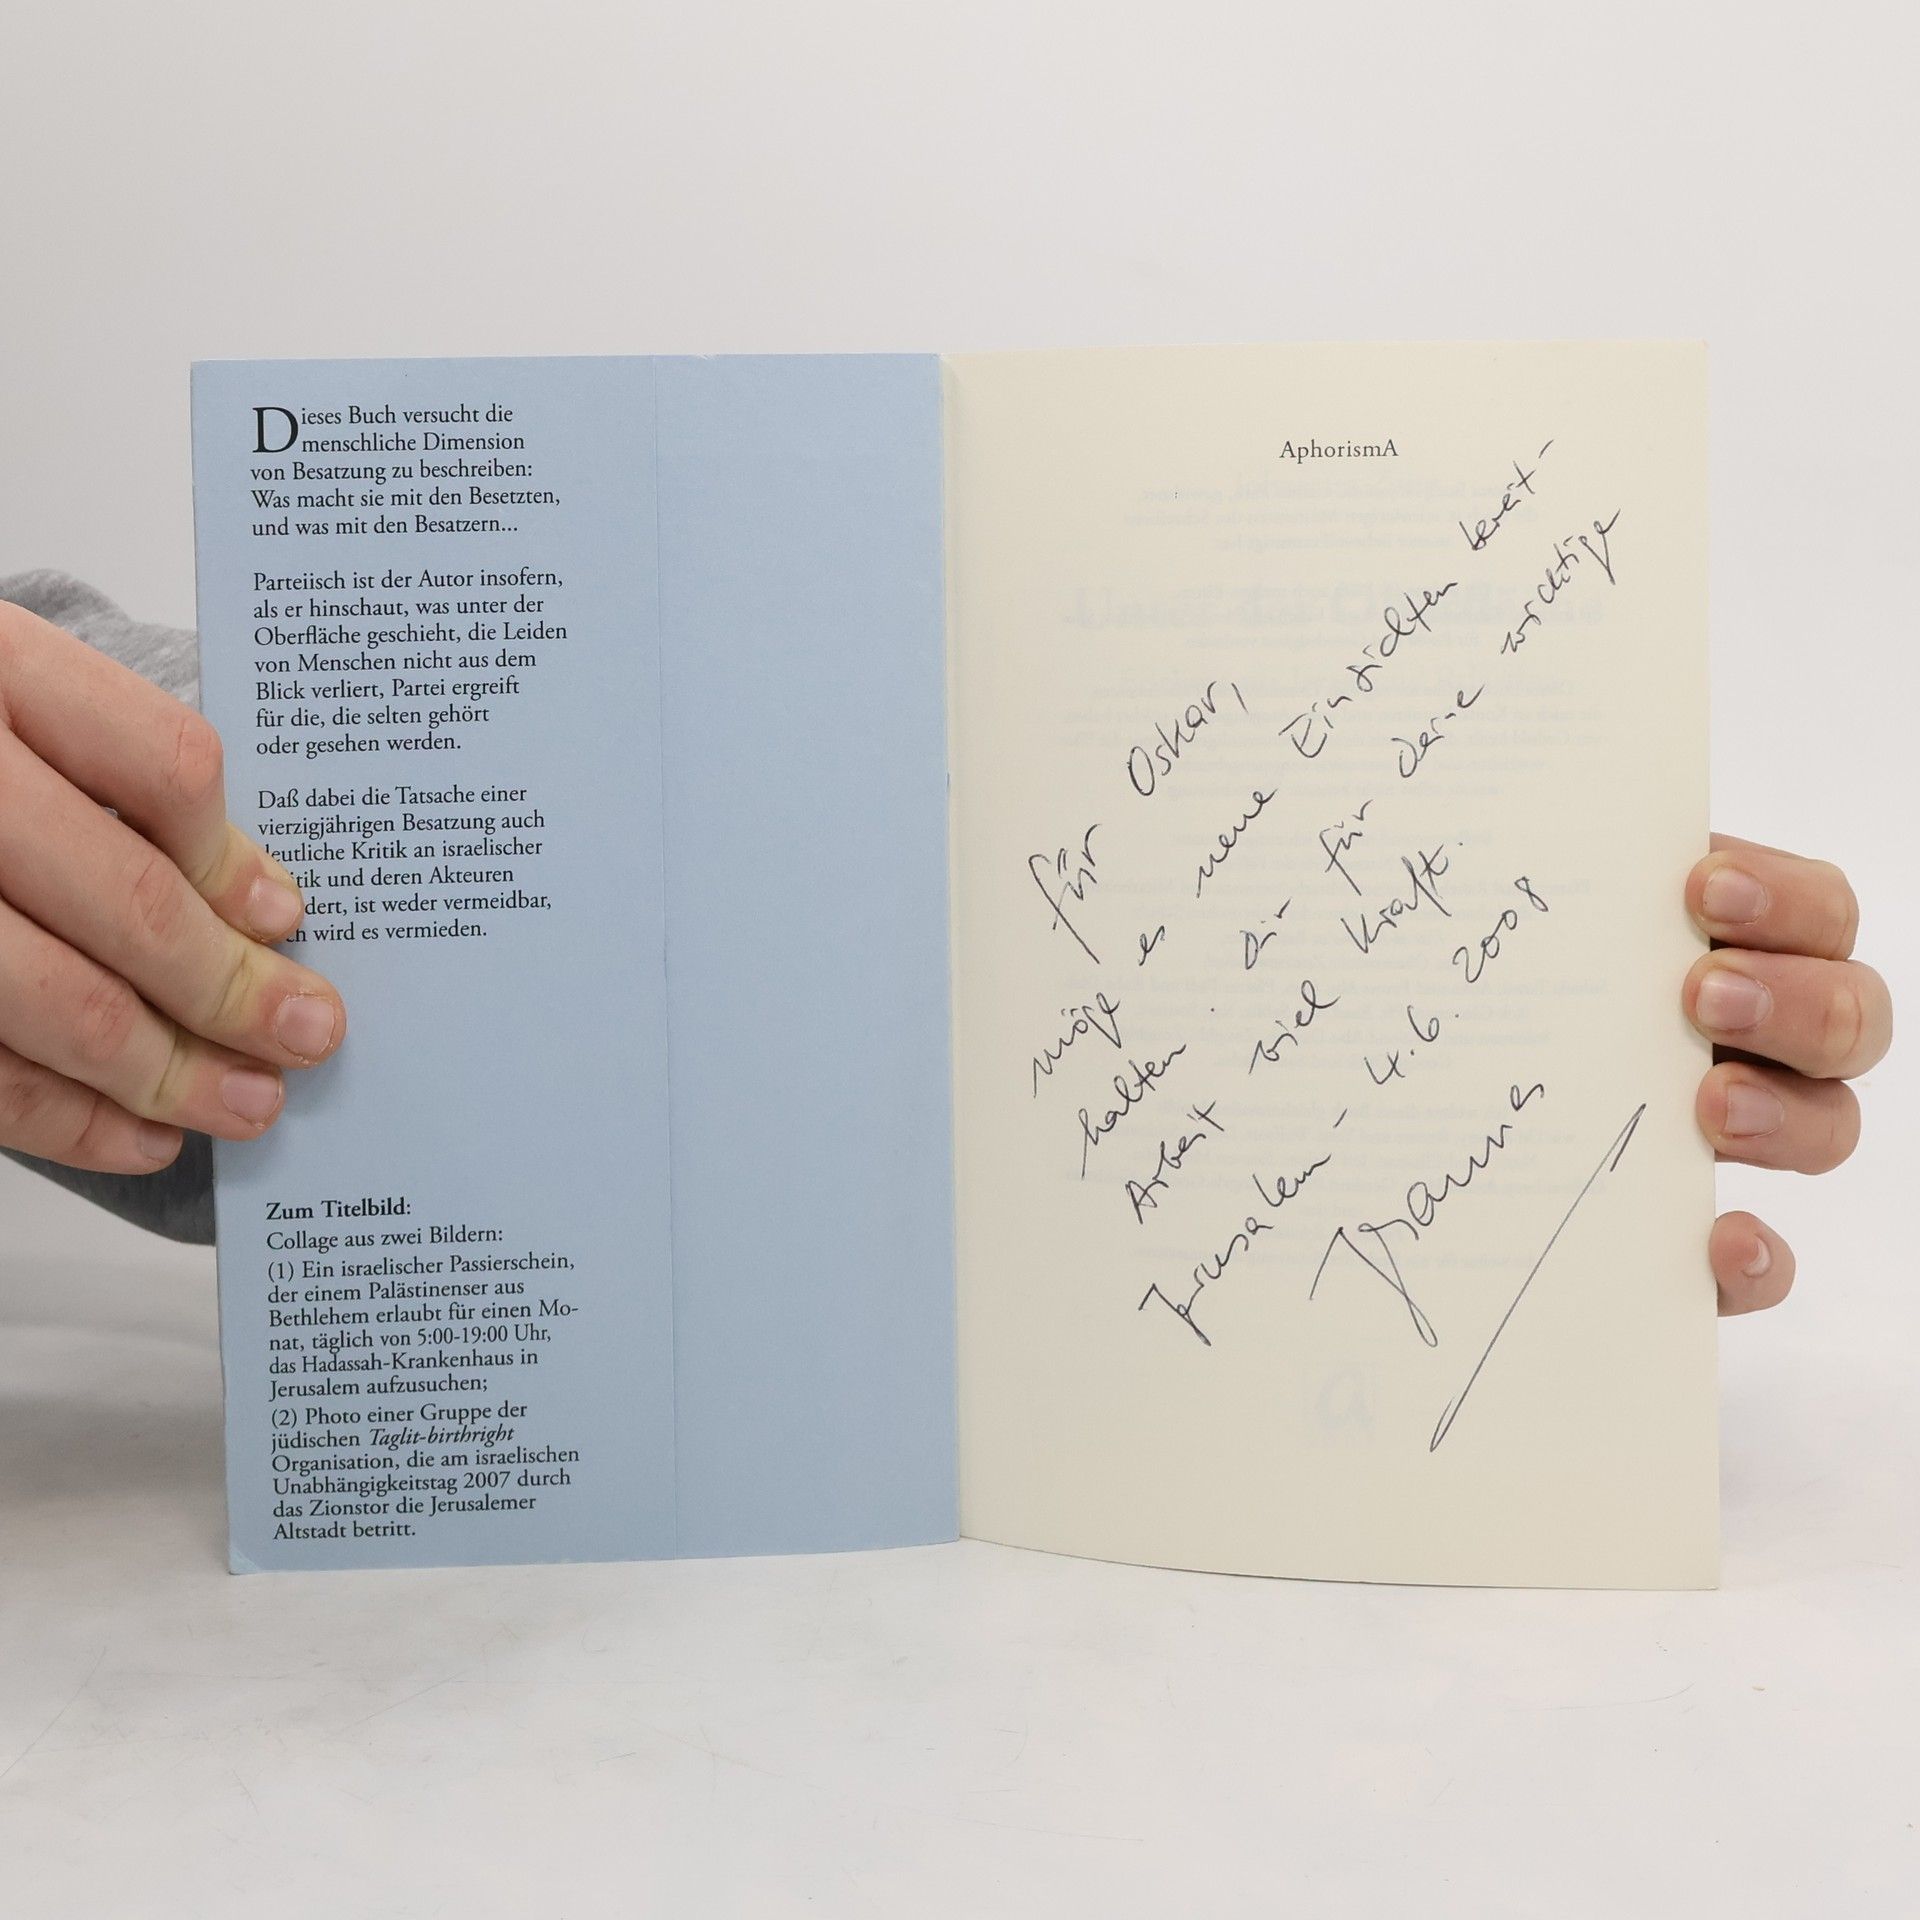 Dieses Buch versucht die
menschliche Dimension
von Besatzung zu beschreiben:
Was macht sie mit den Besetzten,
und was mit den Besatzern...
Parteiisch ist der Autor insofern,
als er hinschaut, was unter der
Oberfläche geschieht, die Leiden
von Menschen nicht aus dem
Blick verliert, Partei ergreift
für die, die selten gehört
oder gesehen werden.
Daß dabei die Tatsache einer
vierzigjährigen Besatzung auch
deutliche Kritik an israelischer
und deren Akteuren
ist weder vermeidbar,
wird es vermieden.
Zum Titelbild:
Collage aus zwei Bildern:
(1) Ein israelischer Passierschein,
der einem Palästinenser aus
Bethlehem erlaubt für einen Mo-
nat, täglich von 5:00-19:00 Uhr,
das Hadassah-Krankenhaus in
Jerusalem aufzusuchen;
(2) Photo einer Gruppe der
jüdischen Taglit-birthright
Organisation, die am israelischen
Unabhängigkeitstag 2007 durch
das Zionstor die Jerusalemer
Altstadt betritt.
AphorismA
für Oskar,
möge es neue Einsichten bereit-
halten. Dir für deine wichtige
Arbeit viel Kraft.
Jerusalem - 4.6.2008